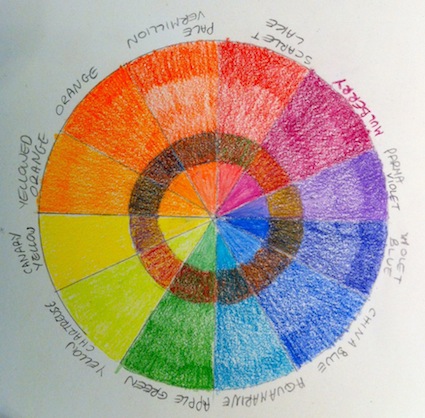 PALE
VERMILLION
SCARLET
LAKE
MULBERRY
PARMA
VIOLET
VIOLET
BLUE
CHINA BLUE
AQUAMARINE
APPLE GREEN
YELLOW
CHARTREUSE
CANARY
YELLOW
YELLOWED
ORANGE
ORANGE